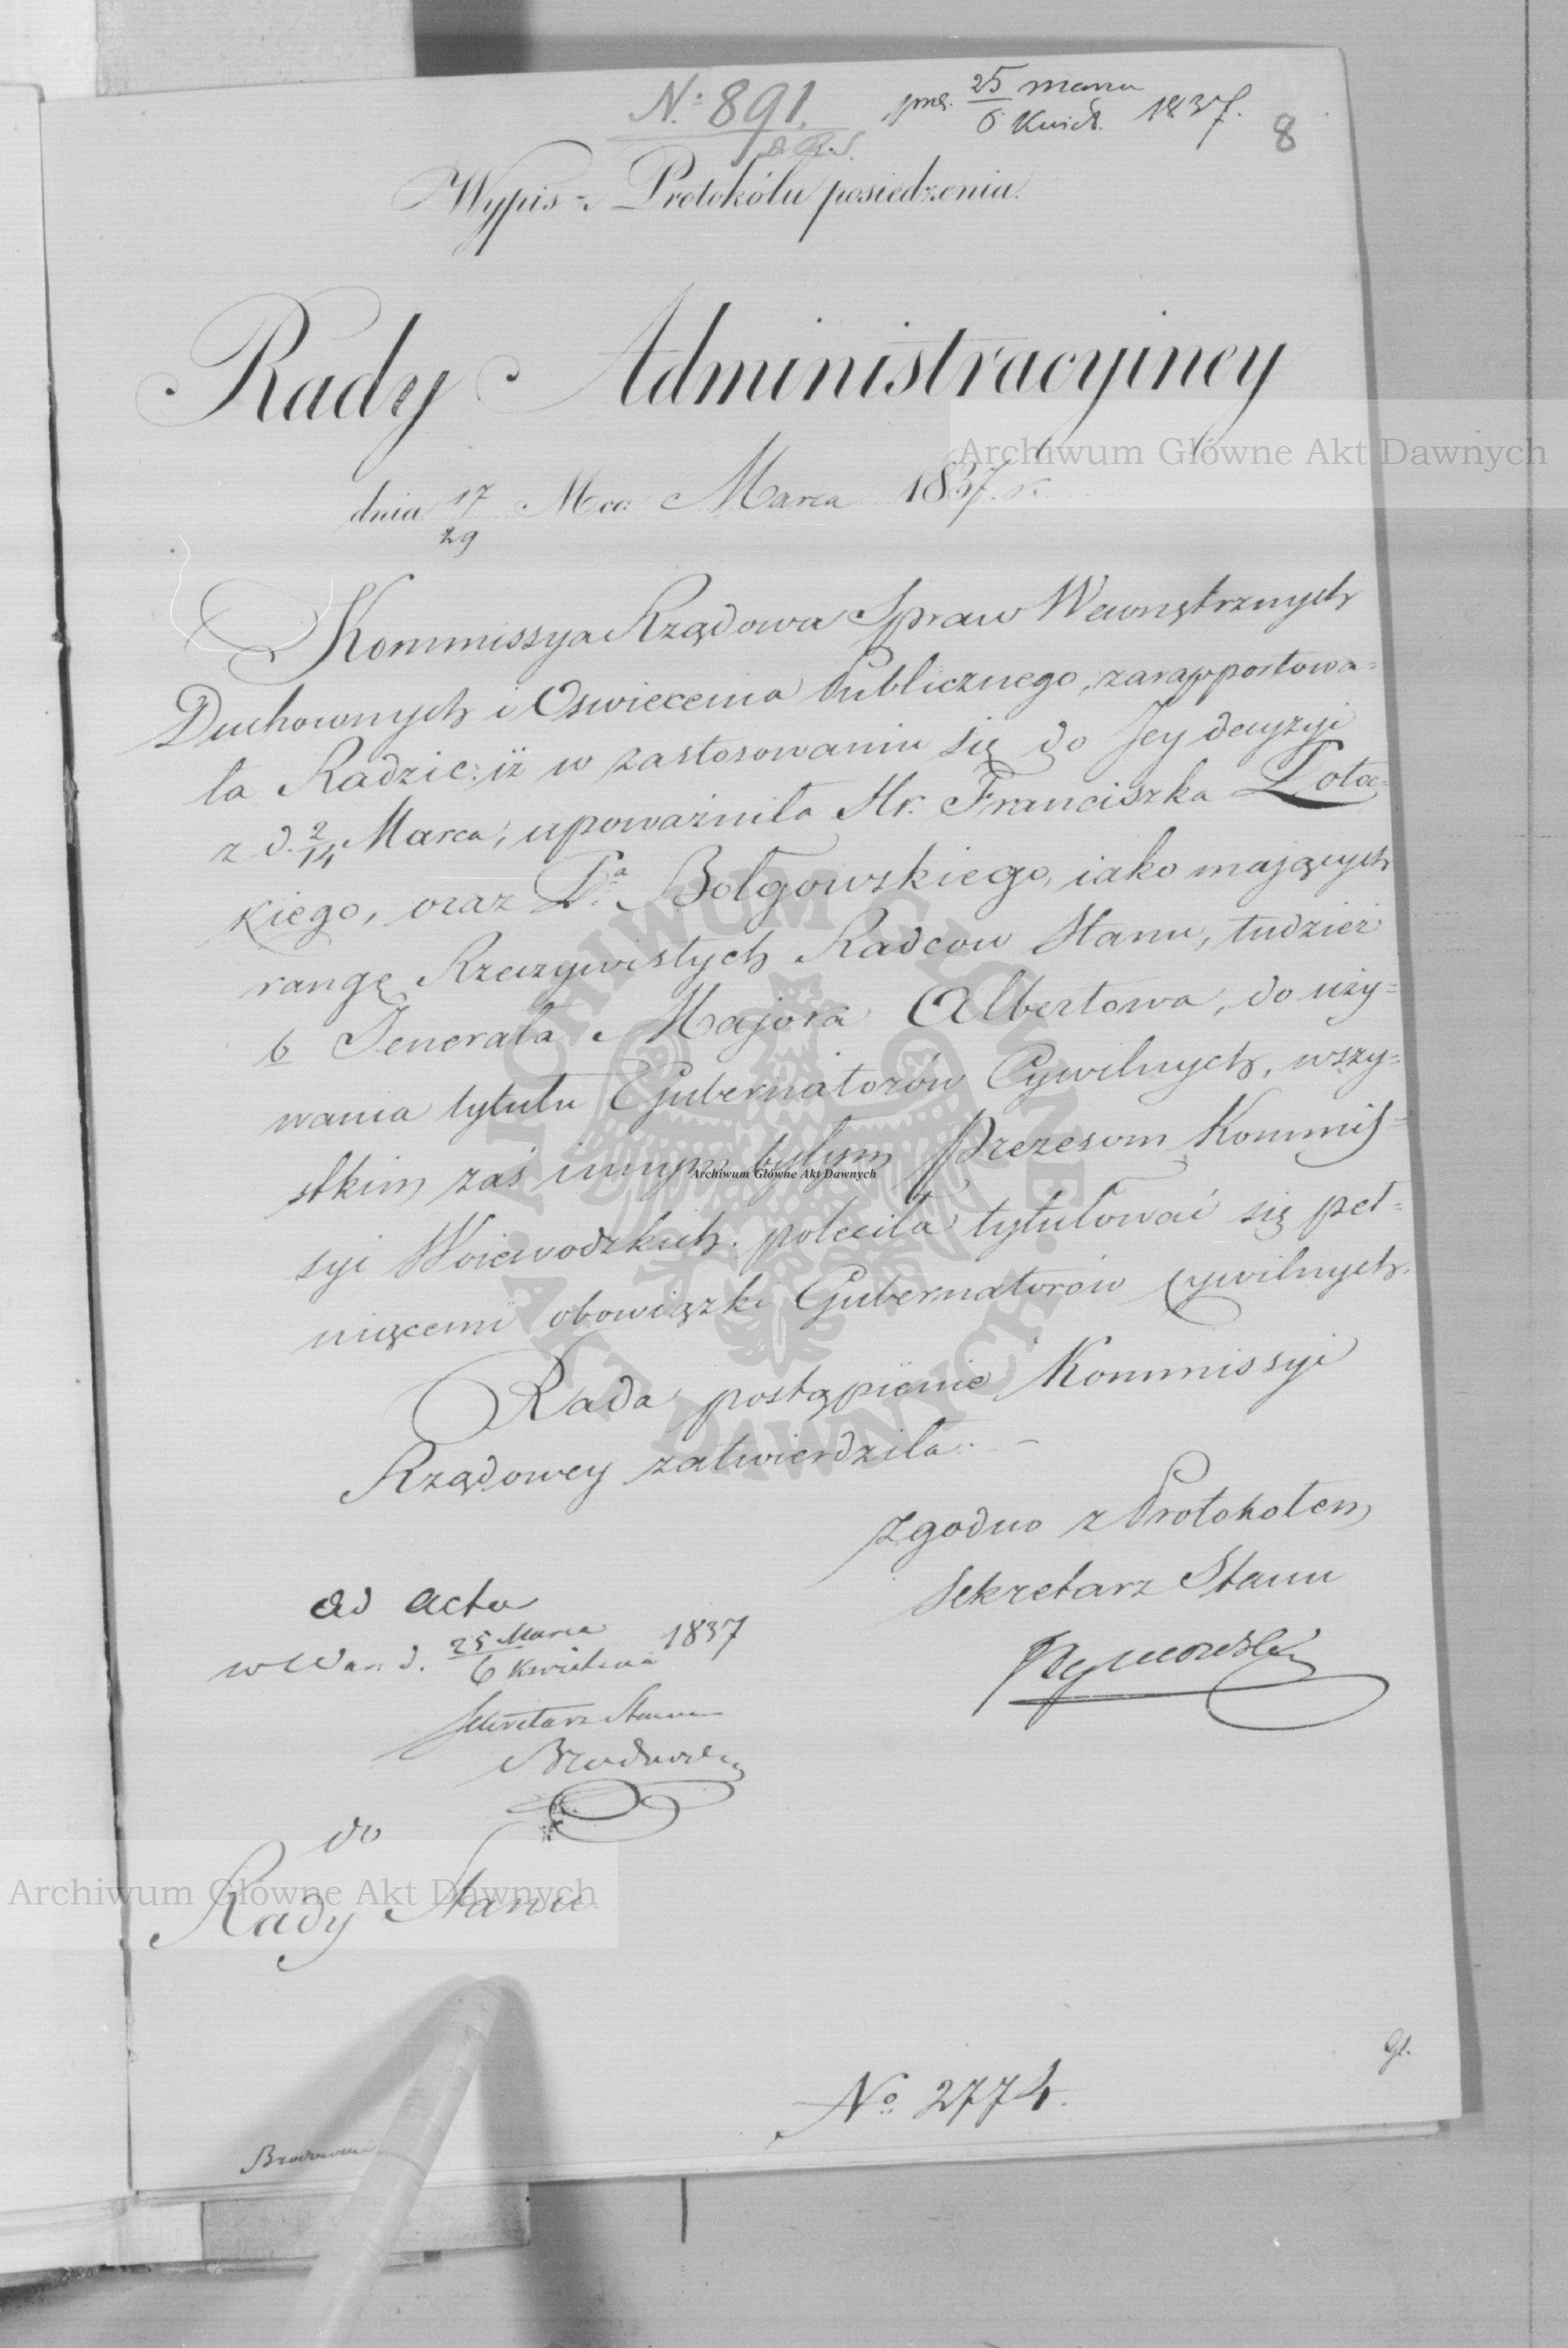 N.o 891.
25 marca
6 Kwiet. 1837.
8
Wypis z Protokółu posiedzenia.
Rady Administracyiney
dnia 17/29 Mca Marca 1837 r.
Kommissya Rządowa Spraw Wewnętrznych
Duchownych i Oswiecenia Publicznego, zarapportowa=
ła Radzie: iż w zastosowaniu się do Jey decyzyi
z d. 2/14 Marca, upoważniła Hr. Franciszka Potoc=
kiego, oraz Pa Bołgowskiego, iako maiących
rangę Rzeczywistych Radcow Stanu, tudzież
b Jenerała Majora Albertowa, do uży=
wania tytułu Gubernatorów Cywilnych, wszy=
stkim zaś innym byłym Prezesom Kommis=
syi Woiewodzkich. poleciła tytułować się peł=
niącemi obowiązki Gubernatorów cywilnych.
Rada postąpienie Kommissyi
Rządowey zatwierdziła. –
Zgodno z Protokołem
Sekretarz Stanu
ad acta
w War. d. 25 Marca / 6 Kwietnia 1837
Sekretarz Stanu
Brodowski
do
Rady Stanu
No 2774.
Gl.
Archiwum Główne Akt Dawnych
Archiwum Główne Akt Dawnych
Archiwum Główne Akt Dawnych
ARCHIWUM GŁÓWNE AKT DAWNYCH